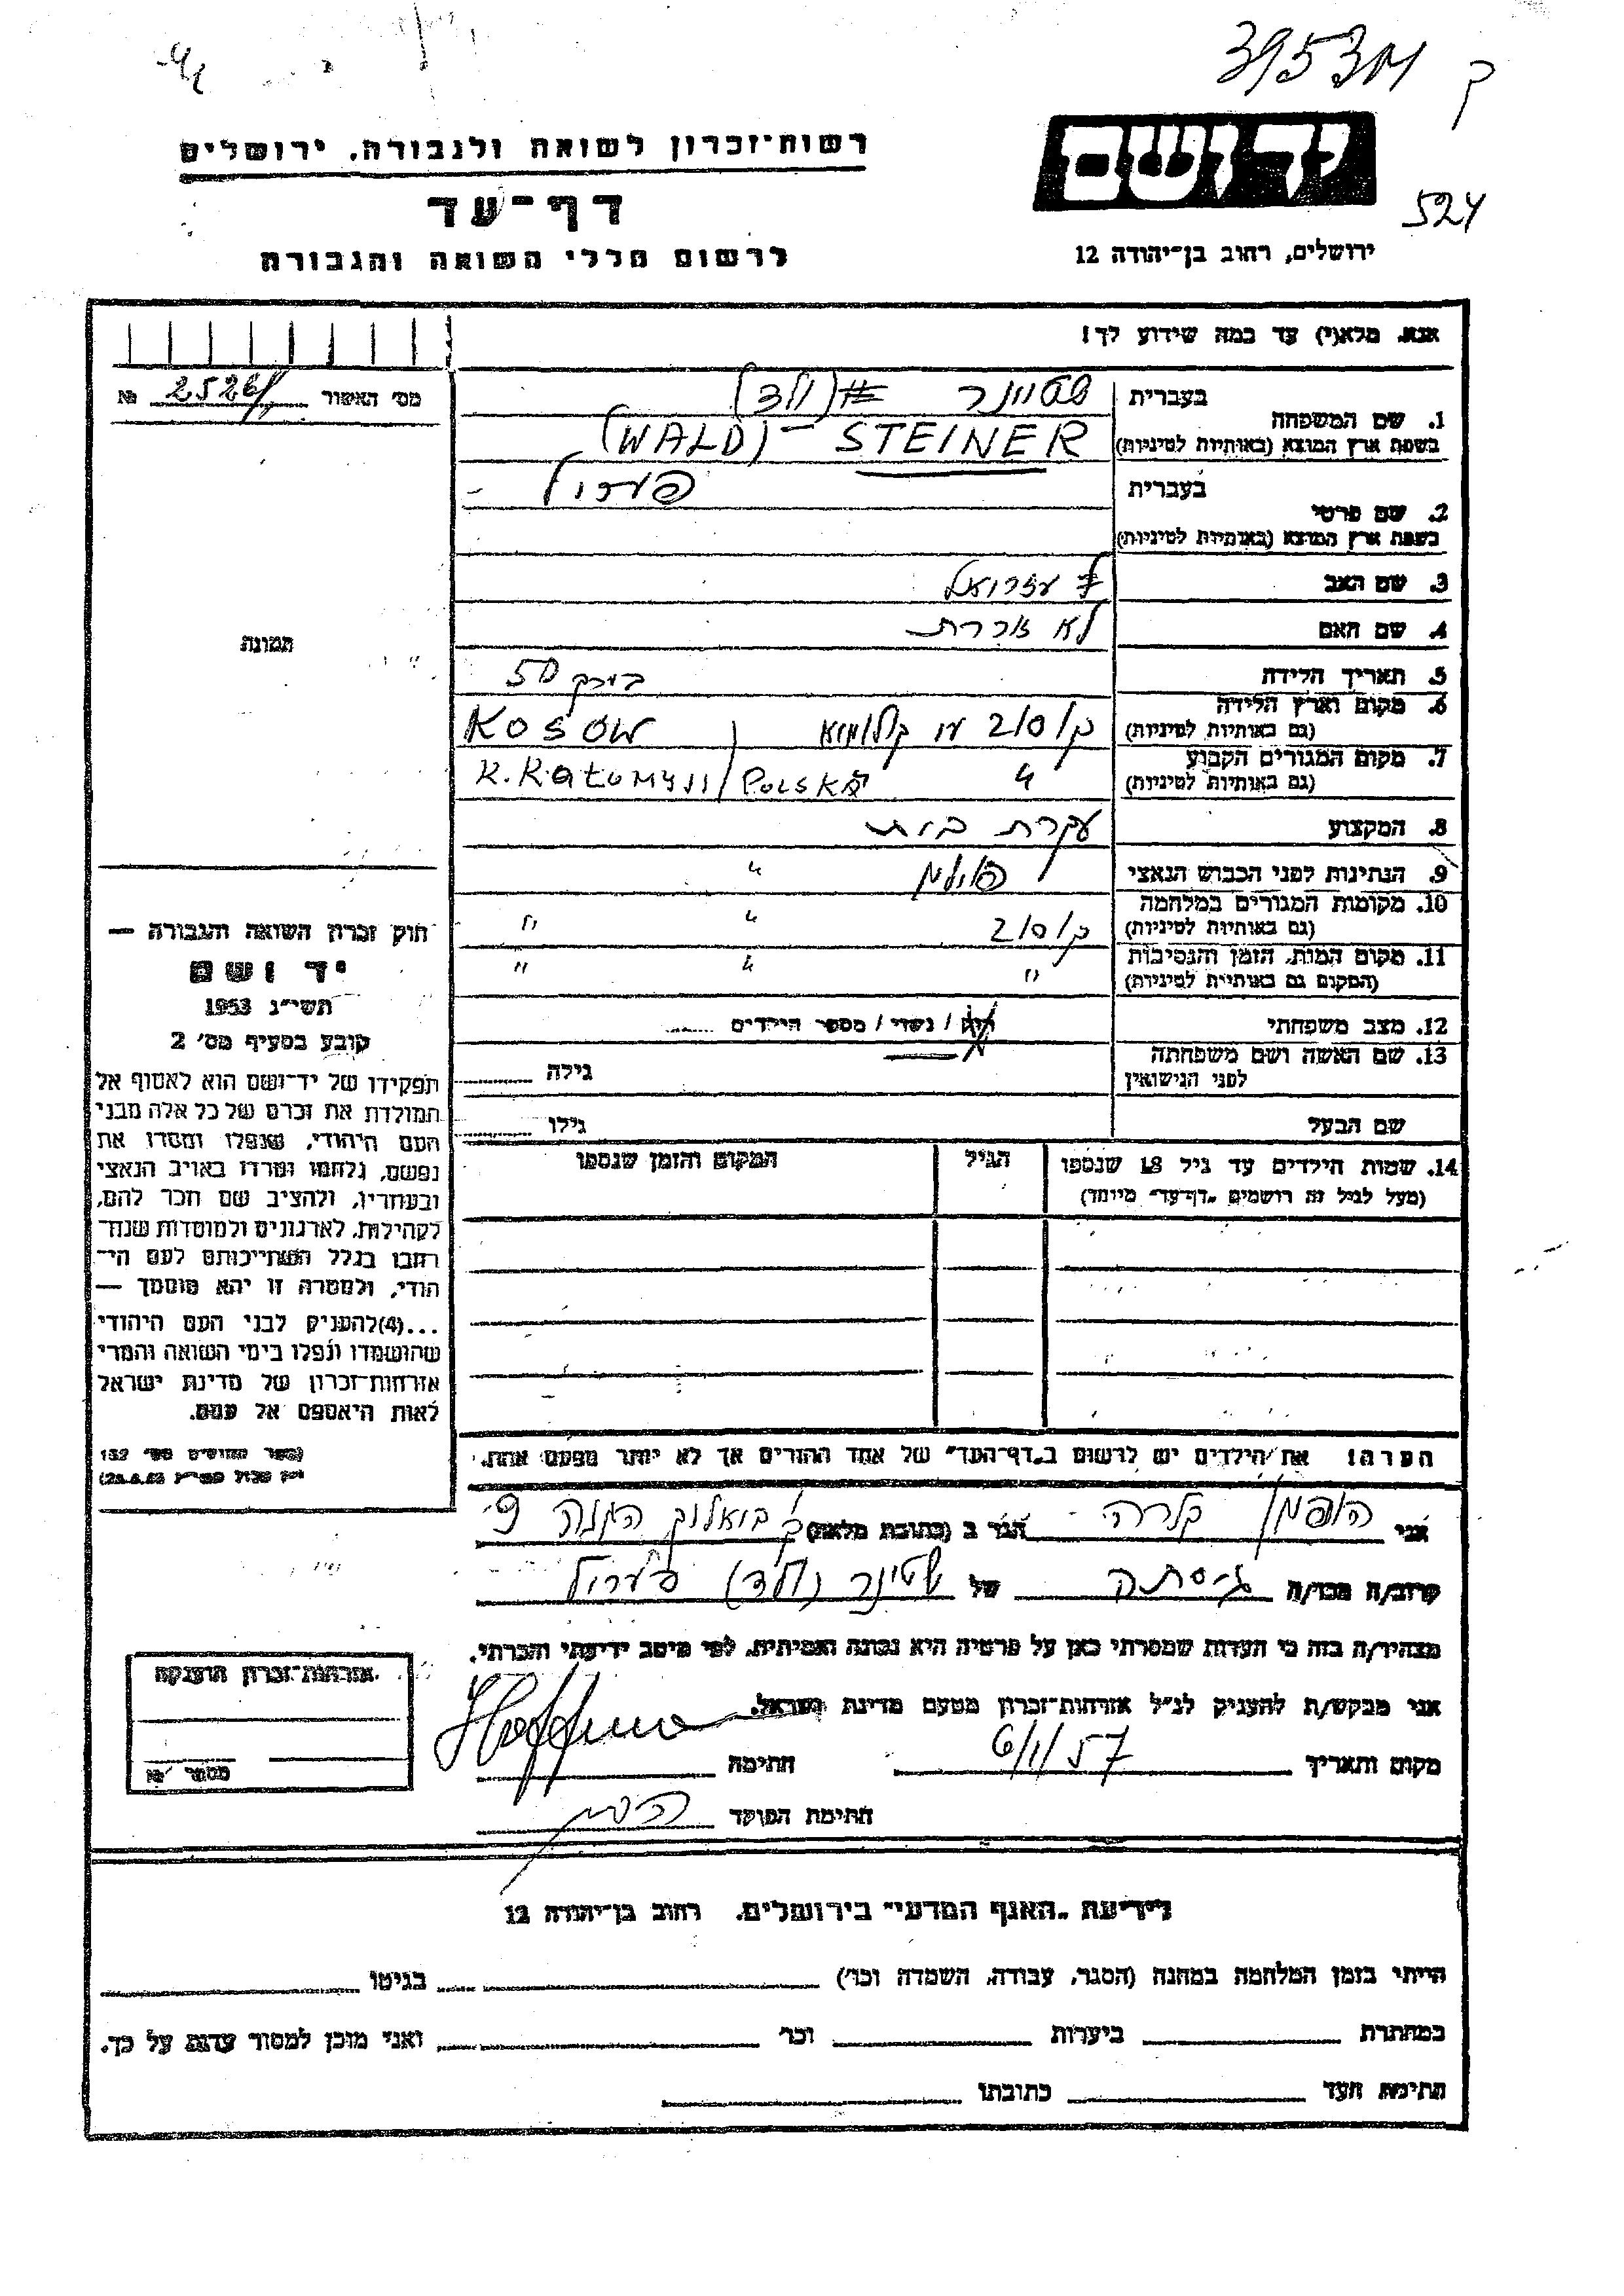 395301 ק
רשות־זכרון לשואה ולגבורה, ירושלים
יד ושם
דף־עד
524
לרשום חללי השואה והגבורה
ירושלים, רחוב בן־יהודה 12
אנא, מלא(י) עד כמה שידוע לך!
מס' האשור 2526 №
1. שם המשפחה
בעברית שטיינר (ולד)
בשפת ארץ המוצא (באותיות לטיניות) (WALD) - STEINER
2. שם פרטי
בעברית פערול
בשפת ארץ המוצא (באותיות לטיניות)
3. שם האב עזריאל
4. שם האם לא זוכרת
תמונה
5. תאריך הלידה בערך 50
6. מקום וארץ הלידה
(גם באותיות לטיניות) KOSÓW
7. מקום המגורים הקבוע "
(גם באותיות לטיניות) POLSKA
8. המקצוע עקרת בית
9. הנתינות לפני הכבוש הנאצי פולין "
10. מקומות המגורים במלחמה
(גם באותיות לטיניות) קוסוב " "
11. מקום המות, הזמן והנסיבות
(המקום גם באותיות לטיניות) " " "
12. מצב משפחתי רווק / נשוי / מספר הילדים
13. שם האשה ושם משפחתה
לפני הנישואין גילה
שם הבעל גילו
14. שמות הילדים עד גיל 18 שנספו הגיל המקום והזמן שנספו
(מעל לגיל זה רושמים "דף־עד" מיוחד)
חוק זכרון השואה והגבורה —
יד ושם
תשי"ג 1953
קובע בסעיף מס' 2
תפקידו של יד־ושם הוא לאסוף אל
המולדת את זכרם של כל אלה מבני
העם היהודי, שנפלו ומסרו את
נפשם, נלחמו ומרדו באויב הנאצי
ובעוזריו, ולהציב שם וזכר להם,
לקהילות, לארגונים ולמוסדות שנח־
רבו בגלל השתייכותם לעם הי־
הודי, ולמטרה זו יהא מוסמך —
...(4) להעניק לבני העם היהודי
שהושמדו ונפלו בימי השואה והמרי
אזרחות־זכרון של מדינת ישראל
לאות היאספם אל עמם.
(ספר החוקים מס' 132
הערה! את הילדים יש לרשום ב"דף־העד" של אחד ההורים אך לא יותר מפעם אחת.
אני הופמן קלרה הגר ב (כתובת מלאה)
קרוב/ה מכר/ה גיסתה של שטינר (ולד) פערול
מצהיר/ה בזה כי העדות שמסרתי כאן על פרטיה היא נכונה ואמיתית, לפי מיטב ידיעתי והכרתי.
אני מבקש/ת להעניק לנ"ל אזרחות־זכרון מטעם מדינת ישראל.
מקום ותאריך 6/1/57 חתימה
חתימת הפוקד
אזרחות־זכרון הוענקה
מספר №
לידיעת "האגף המדעי" בירושלים, רחוב בן־יהודה 12
הייתי בזמן המלחמה במחנה (הסגר, עבודה, השמדה וכו') בגיטו
במחתרת ביערות וכו' ואני מוכן למסור עדות על כך.
חתימת העד כתובתו